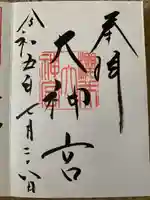 奉拝
大神宮
令和五年七月二八日